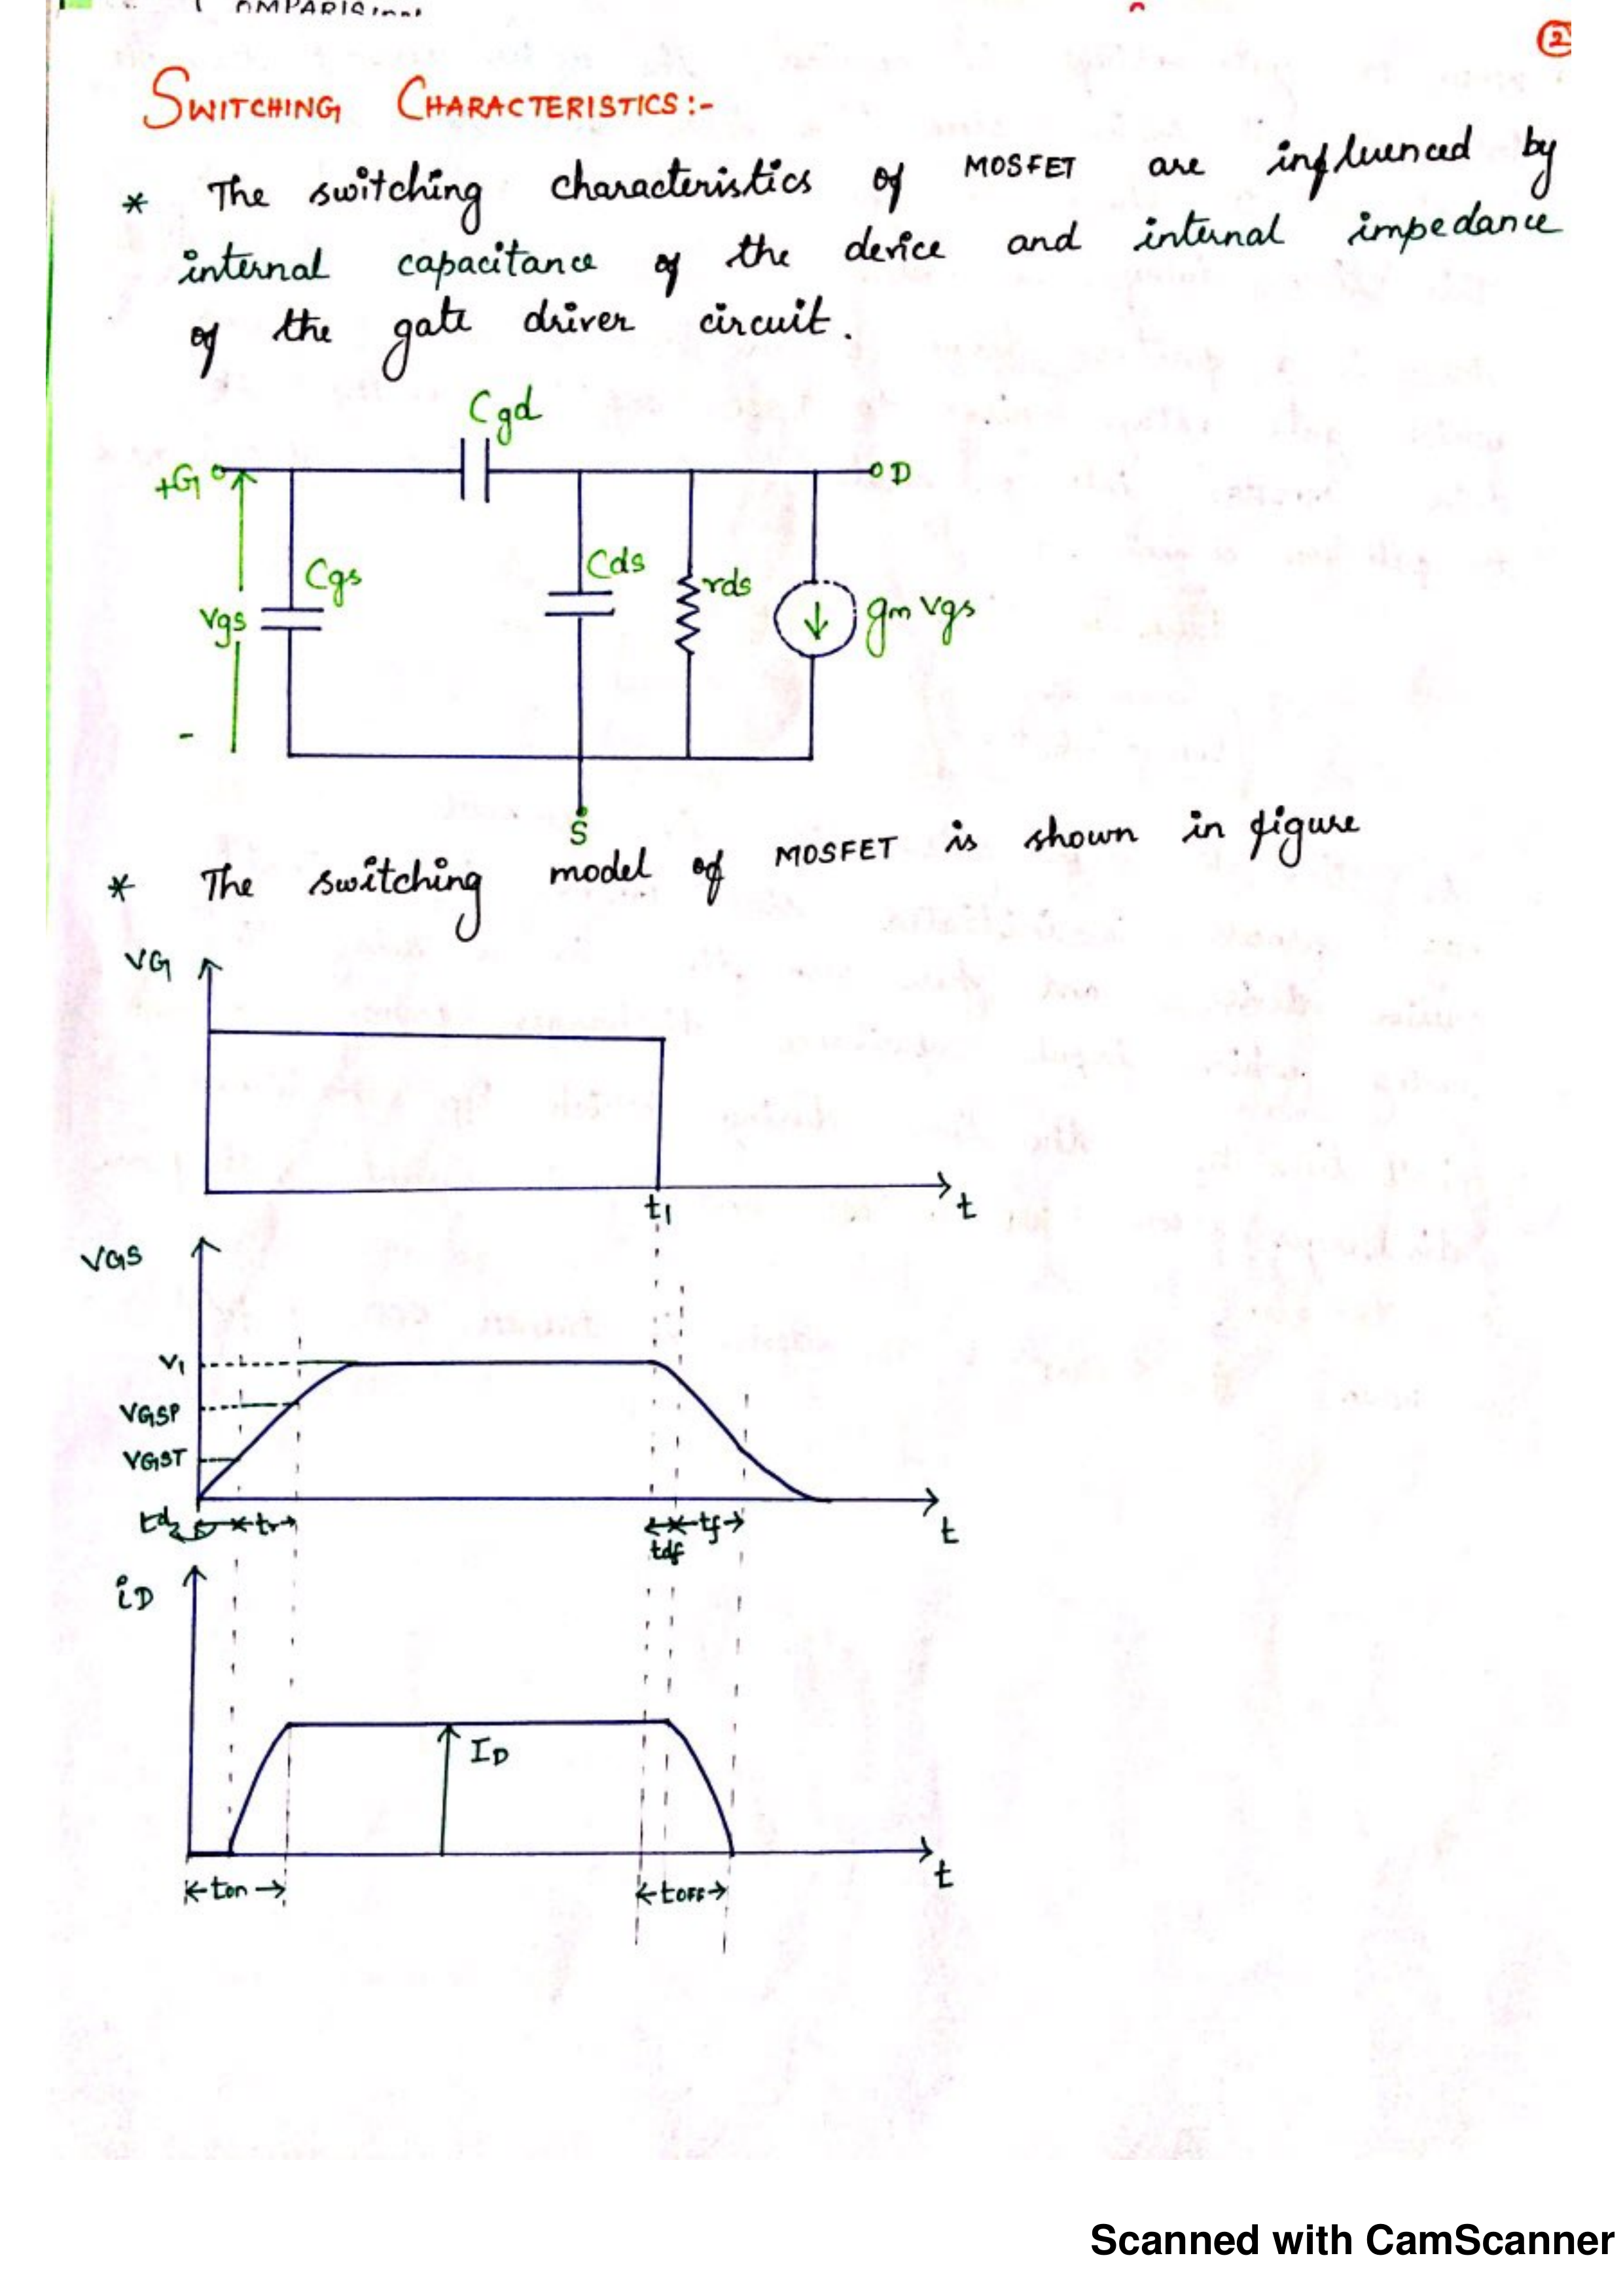 ②
SWITCHING CHARACTERISTICS:-
* The switching characteristics of MOSFET are influenced by
internal capacitance of the device and internal impedance
of the gate driver circuit.
Cgd
+G
D
Cgs
Cds
rds
gm vgs
vgs
-
S
* The switching model of MOSFET is shown in figure
VG
t1
t
VGS
V1
VGSP
VGST
tr
tdf
tf
t
iD
ID
ton
tOFF
t
Scanned with CamScanner